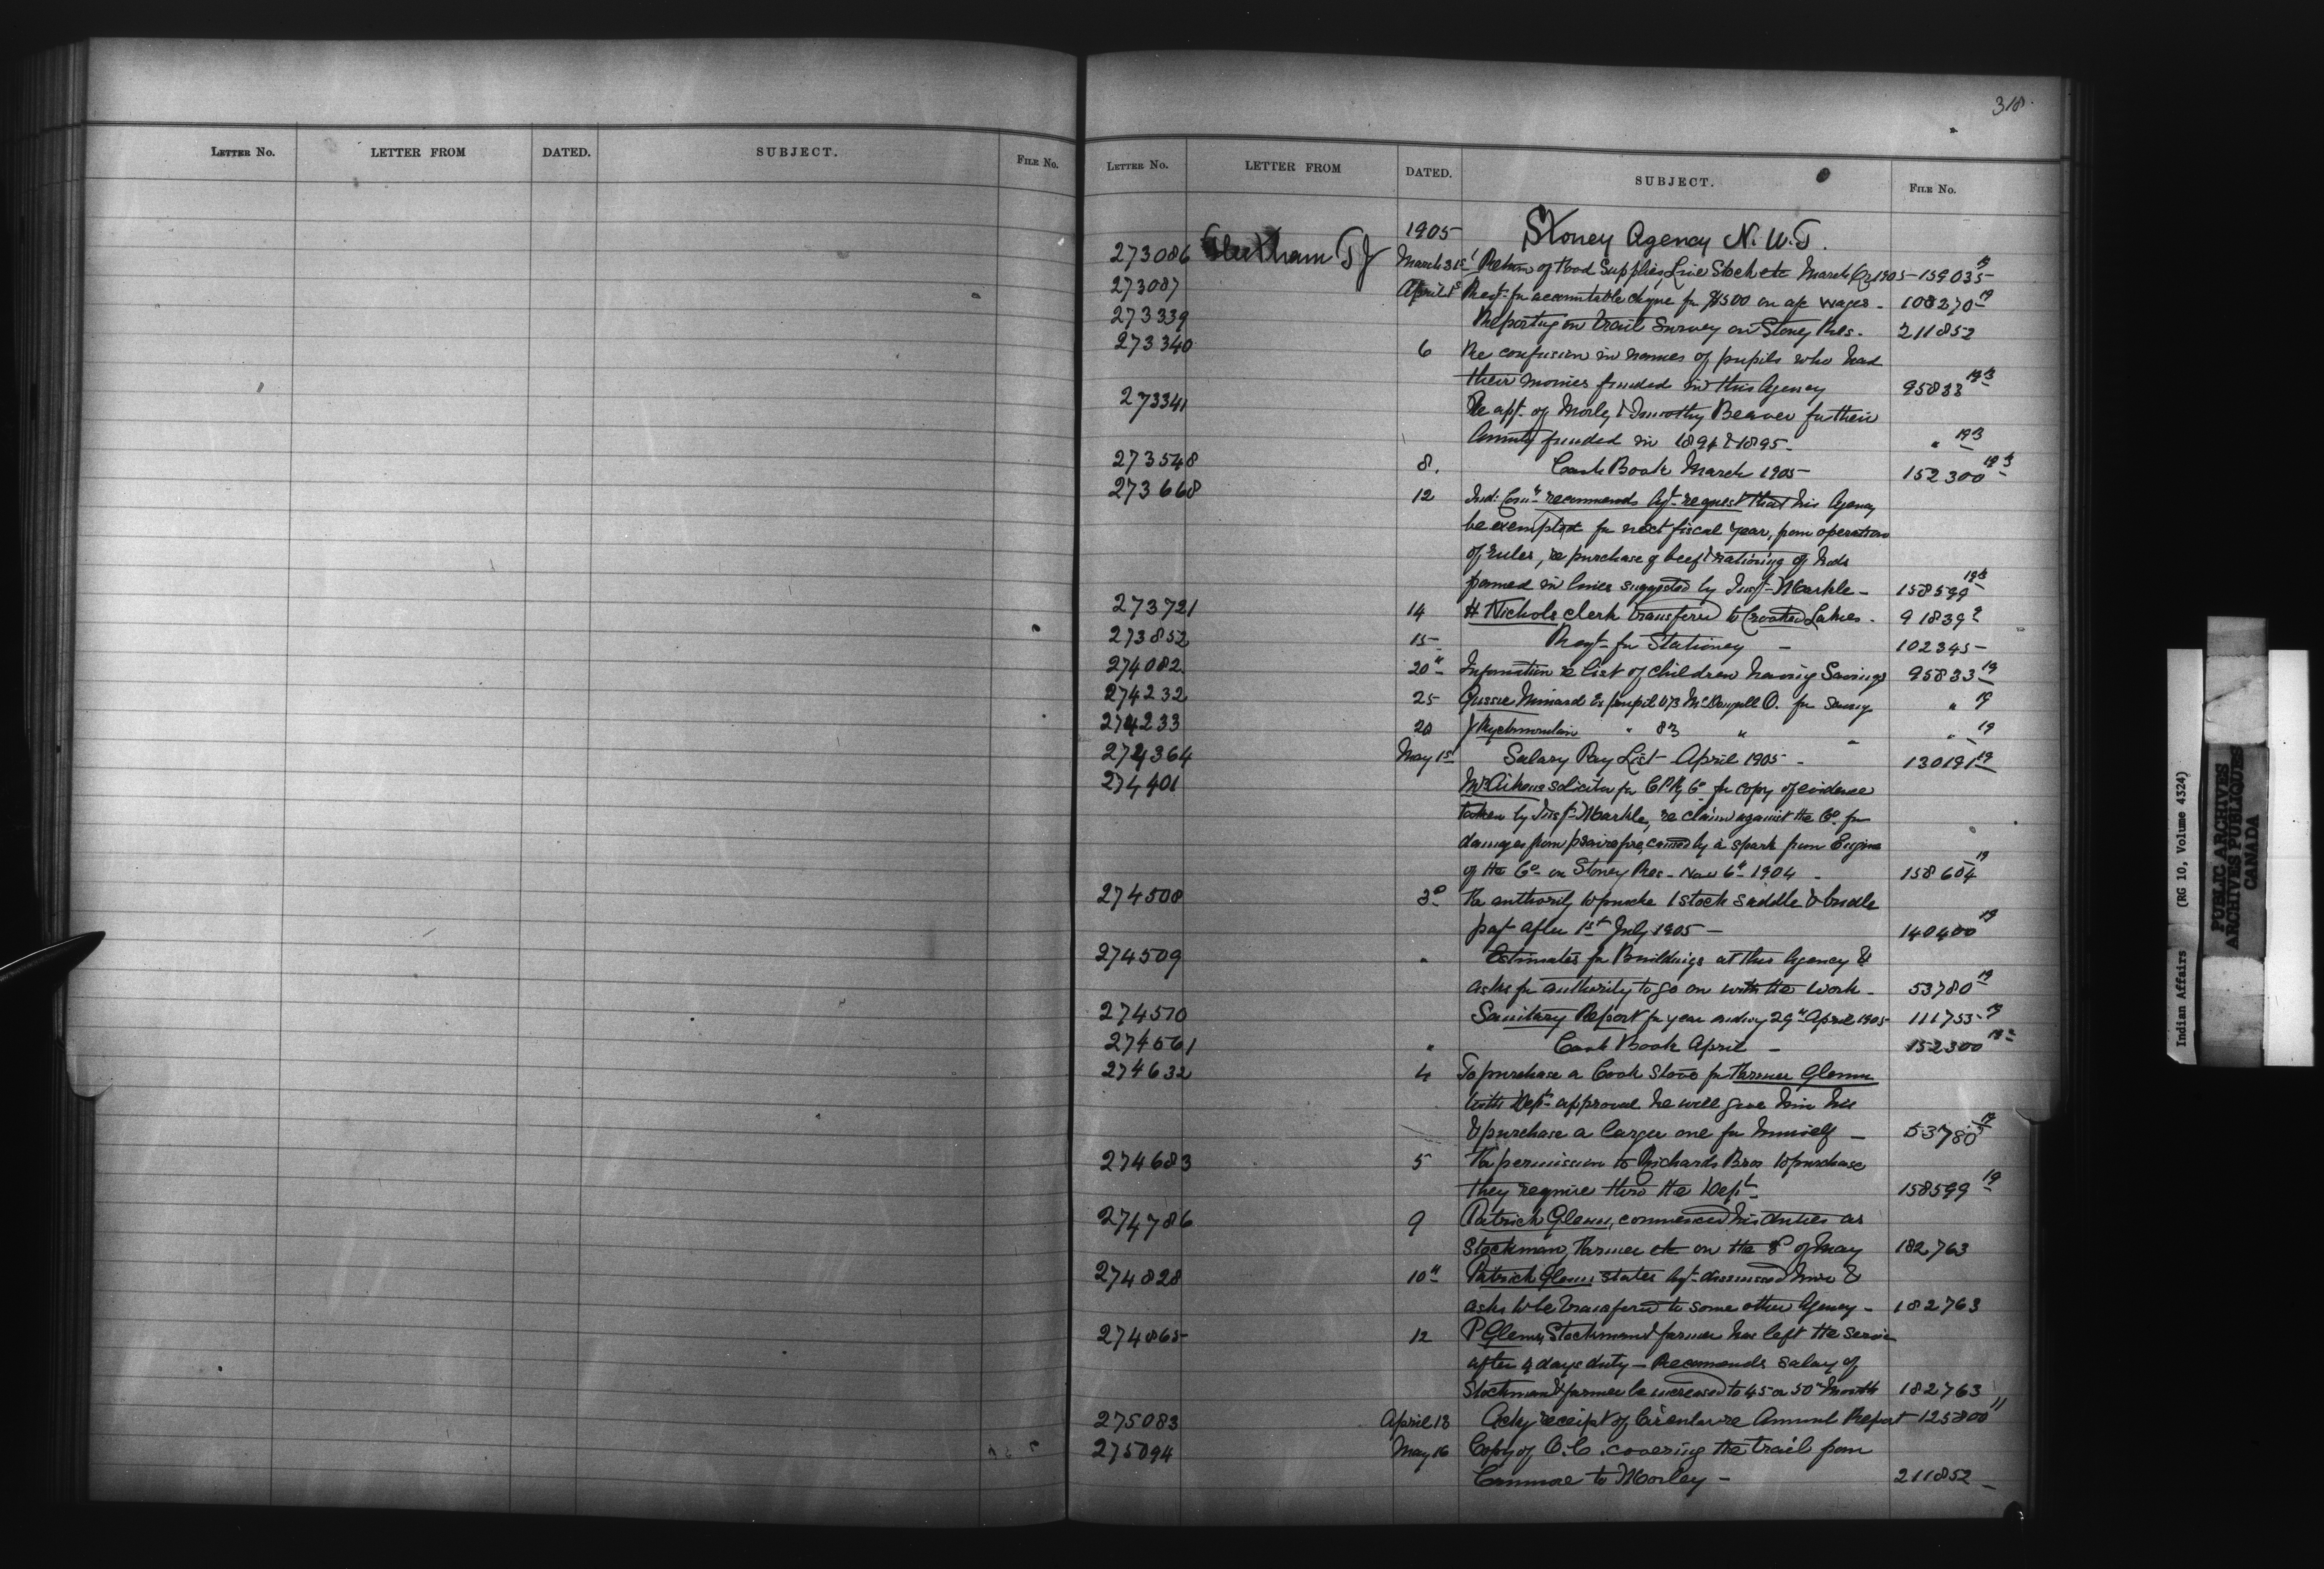 318
LETTER NO. LETTER FROM DATED. SUBJECT. FILE NO.
LETTER NO. LETTER FROM DATED. SUBJECT. FILE NO.
1905 Stoney Agency N.W.T.
273086 Fleetham T J March 31st Return of Food Supplies, Live Stock etc March Qr 1905 - 159035 19
273087 April 1st Reqt for accountable cheque for $1500 on a/c wages - 108270 19
273339 Reporting on trail Survey on Stoney Res. 211852
273340 6 Re confusion in names of pupils who had
their monies funded in this Agency 95833
273341 Re apt. of Morley & Timothy Beaver for their
Annuity funded in 1894 & 1895 - "
273548 8. Cash Book March 1905 - 152300
273668 12 Ind: Comr recommends Agt request that his Agency
be exempted for next fiscal year, from operation
of rules, re purchase of beef & rationing of Inds
framed in lines suggested by Insp - Markle - 158599
273721 14 H Nichols clerk transferred to Crooked Lakes - 91839
273852 15 Reqt for Stationery - 102345 -
274082 20th Information re list of children having Savings 95833 19
274232 25 Gussie Ex pupil 073 McDougall O. for Savings " 19
274233 20 J " 83 " " 19
274364 May 1st Salary Pay List - April 1905 - 130191 19
274401 Mr Aikens solicitor for C P Ry Co for copy of evidence
taken by Insp - Markle, re claim against the Co. for
damages from prairie fire, caused by a spark from Engine
of the Co on Stoney Res - Nov 6th 1904 - 158604 19
274508 3d For authority to purchase 1 stock saddle & bridle
pay after 1st July 1905 - 140400 19
274509 " Estimates for Buildings at this Agency &
asks for authority to go on with the work - 53780 19
274510 Sanitary Report for year ending 29th April 1905 111753 19
274561 " Cash Book April - 152300
274632 4 To purchase a Cook Stove for Farmer Glenn
with Dept approval he will give him his
& purchase a larger one for himself - 53780 19
274683 5 For permission to Richards Bros to purchase
they require thro the Dept 158599 19
274786 9 Patrick Glenn, commenced his duties as
Stockman, Farmer etc on the 8th of May 182763
274828 10th Patrick Glenn states Agt dismissed him &
asks to be transferred to some other Agency - 182763
274865 12 P Glenn, Stockman & farmer has left the service
after 4 days duty - Recommends salary of
Stockman & farmer be increased to 45 or 50 pr month 182763
275083 April 18 Ackg receipt of Circular re Annual Report - 125800 11
275094 May 16 Copy of O.C. covering the trail from
Canmore to Morley - 211852 -
Indian Affairs (RG 10, Volume 4324)
PUBLIC ARCHIVES
ARCHIVES PUBLIQUES
CANADA